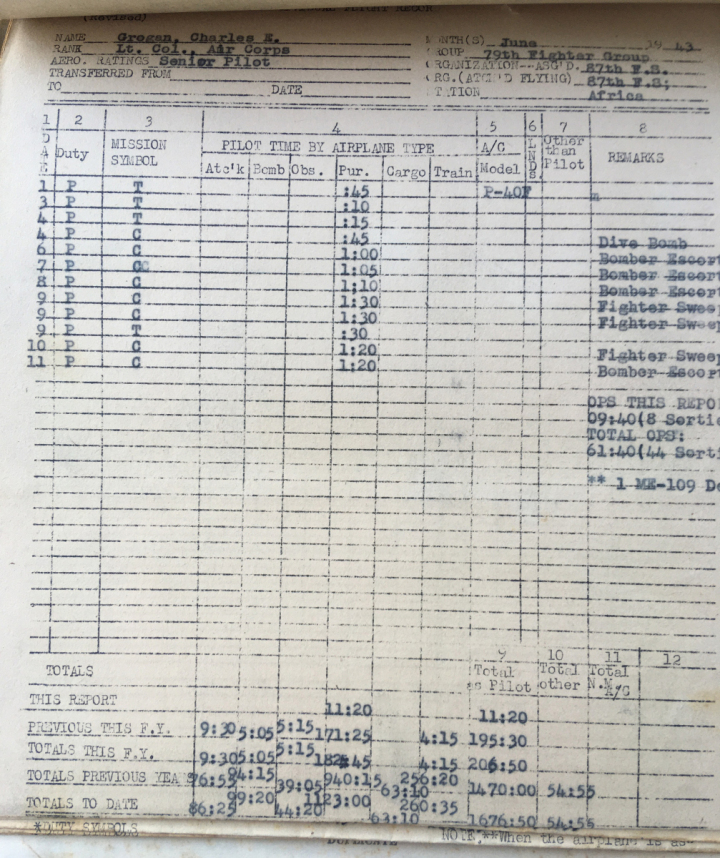 (Revised)
NAME Grogan, Charles E. MONTH(S) June 1943
RANK Lt. Col., Air Corps GROUP 79th Fighter Group
AERO. RATINGS Senior Pilot ORGANIZATION--ASG'D. 87th F.S.
TRANSFERRED FROM ORG.(ATC'D FLYING) 87th F.S;
TO DATE STATION Africa
1 2 3 4 5 6 7 8
DATE Duty MISSION SYMBOL PILOT TIME BY AIRPLANE TYPE A/C Model LNDS Other than Pilot REMARKS
Atc'k Bomb Obs. Pur. Cargo Train
1 P T :45 P-40F
3 P T :10
4 P T :15
4 P C :45 Dive Bomb
6 P C 1:00 Bomber Escort
7 P C 1:05 Bomber Escort
8 P C 1:10 Bomber Escort
9 P C 1:30 Fighter Sweep
9 P C 1:30 Fighter Sweep
9 P T :30
10 P C 1:20 Fighter Sweep
11 P C 1:20 Bomber Escort
OPS THIS REPO
09:40(8 Sortie
TOTAL OPS:
61:40(44 Sorti
** 1 ME-109 De
9 10 11 12
TOTALS Total as Pilot Total other Total N.M. A/C
THIS REPORT 11:20 11:20
PREVIOUS THIS F.Y. 9:30 5:05 5:15 171:25 4:15 195:30
TOTALS THIS F.Y. 9:30 5:05 5:15 4:15 206:50
TOTALS PREVIOUS YEARS 76:55 94:15 39:05 940:15 63:10 256:20 1470:00 54:55
TOTALS TO DATE 86:25 99:20 44:20 1123:00 63:10 260:35 1676:50 54:55
*DUTY SYMBOLS DUPLICATE NOTE,**When the airplane is as-